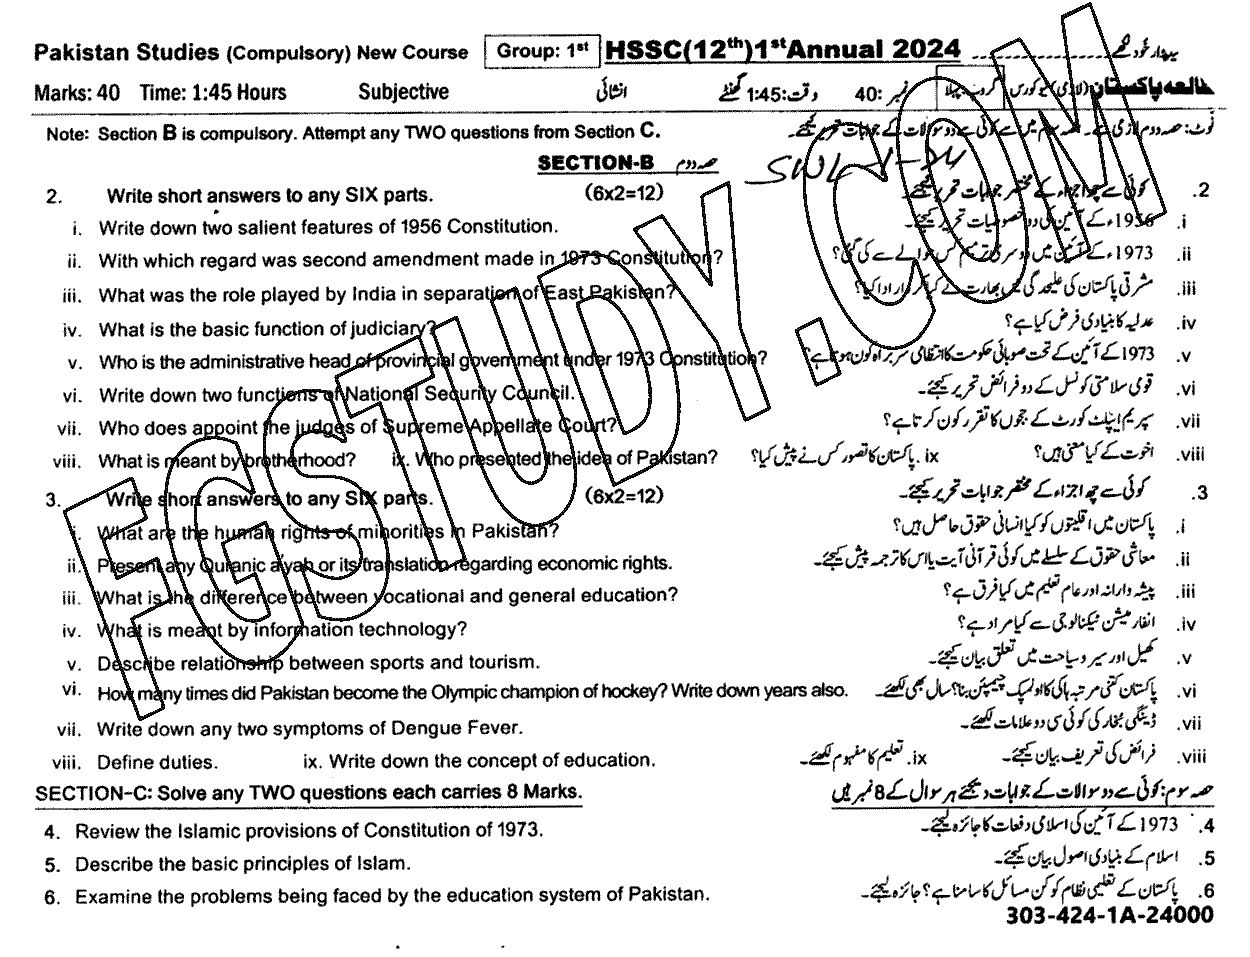 Pakistan Studies (Compulsory) New Course Group: 1st HSSC(12th)1st Annual 2024
مطالعہ پاکستان (لازمی) نیوکورس گروپ: پہلا
Marks: 40 Time: 1:45 Hours Subjective انشائی وقت: 1:45 گھنٹے نمبر: 40
Note: Section B is compulsory. Attempt any TWO questions from Section C. نوٹ: حصہ دوم لازمی ہے۔ حصہ سوم میں سے کوئی سے دو سوالات کے جوابات تحریر کیجئے۔
SECTION-B حصہ دوم
SWL-1-24
2. Write short answers to any SIX parts. (6x2=12) کوئی سے چھ اجزاء کے مختصر جوابات تحریر کیجئے۔ .2
i. Write down two salient features of 1956 Constitution. 1956ء کے آئین کی دو خصوصیات تحریر کیجئے۔ .i
ii. With which regard was second amendment made in 1973 Constitution? 1973ء کے آئین میں دوسری ترمیم کس حوالے سے کی گئی؟ .ii
iii. What was the role played by India in separation of East Pakistan? مشرقی پاکستان کی علیحدگی میں بھارت نے کیا کردار ادا کیا؟ .iii
iv. What is the basic function of judiciary? عدلیہ کا بنیادی فرض کیا ہے؟ .iv
v. Who is the administrative head of provincial government under 1973 Constitution? 1973ء کے آئین کے تحت صوبائی حکومت کا انتظامی سربراہ کون ہوتا ہے؟ .v
vi. Write down two functions of National Security Council. قومی سلامتی کونسل کے دو فرائض تحریر کیجئے۔ .vi
vii. Who does appoint the judges of Supreme Appellate Court? سپریم اپیلٹ کورٹ کے ججوں کا تقرر کون کرتا ہے؟ .vii
viii. What is meant by brotherhood? ix. Who presented the idea of Pakistan? ix. پاکستان کا تصور کس نے پیش کیا؟ اخوت کے کیا معنی ہیں؟ .viii
3. Write short answers to any SIX parts. (6x2=12) کوئی سے چھ اجزاء کے مختصر جوابات تحریر کیجئے۔ .3
i. What are the human rights of minorities in Pakistan? پاکستان میں اقلیتوں کو کیا انسانی حقوق حاصل ہیں؟ .i
ii. Present any Quranic ayah or its translation regarding economic rights. معاشی حقوق کے سلسلے میں کوئی قرآنی آیت یا اس کا ترجمہ پیش کیجئے۔ .ii
iii. What is the difference between vocational and general education? پیشہ وارانہ اور عام تعلیم میں کیا فرق ہے؟ .iii
iv. What is meant by information technology? انفارمیشن ٹیکنالوجی سے کیا مراد ہے؟ .iv
v. Describe relationship between sports and tourism. کھیل اور سیر و سیاحت میں تعلق بیان کیجئے۔ .v
vi. How many times did Pakistan become the Olympic champion of hockey? Write down years also. پاکستان کتنی مرتبہ ہاکی کا اولمپک چیمپئن بنا؟ سال بھی لکھئے۔ .vi
vii. Write down any two symptoms of Dengue Fever. ڈینگی بخار کی کوئی سی دو علامات لکھئے۔ .vii
viii. Define duties. ix. Write down the concept of education. ix. تعلیم کا مفہوم لکھئے۔ فرائض کی تعریف بیان کیجئے۔ .viii
SECTION-C: Solve any TWO questions each carries 8 Marks. حصہ سوم: کوئی سے دو سوالات کے جوابات دیجئے ہر سوال کے 8 نمبر ہیں
4. Review the Islamic provisions of Constitution of 1973. 1973ء کے آئین کی اسلامی دفعات کا جائزہ لیجئے۔ .4
5. Describe the basic principles of Islam. اسلام کے بنیادی اصول بیان کیجئے۔ .5
6. Examine the problems being faced by the education system of Pakistan. پاکستان کے تعلیمی نظام کو کن مسائل کا سامنا ہے؟ جائزہ لیجئے۔ .6
303-424-1A-24000
FGSTUDY.COM